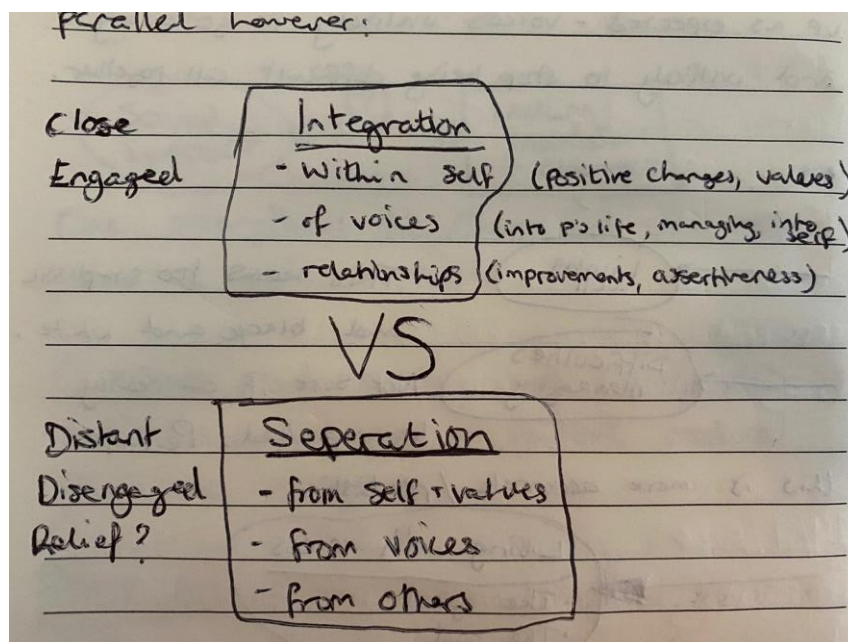 parallel however:
Close Integration
Engaged - Within self (positive changes, values)
- of voices (into p's life, managing, into self)
- relationships (improvements, assertiveness)
VS
Distant Seperation
Disengaged - from self + values
Relief? - from voices
- from others